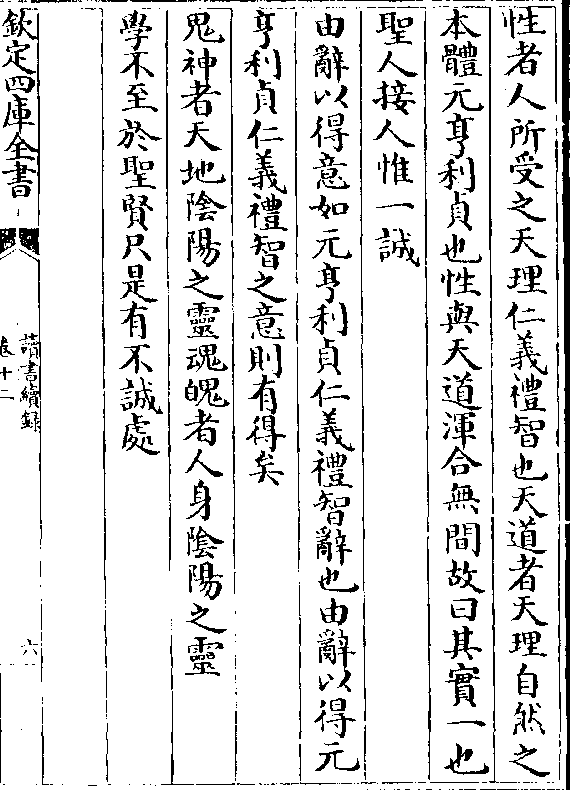 性者人所受之天理仁義禮智也天道者天理自然之
本體元亨利貞也性與天道渾合無間故曰其實一也
聖人接人惟一誠
由辭以得意如元亨利貞仁義禮智辭也由辭以得元
亨利貞仁義禮智之意則有得矣
鬼神者天地陰陽之靈魂魄者人身陰陽之靈
學不至於聖賢只是有不誠處
欽定四庫全書
讀書續錄
卷十二
六